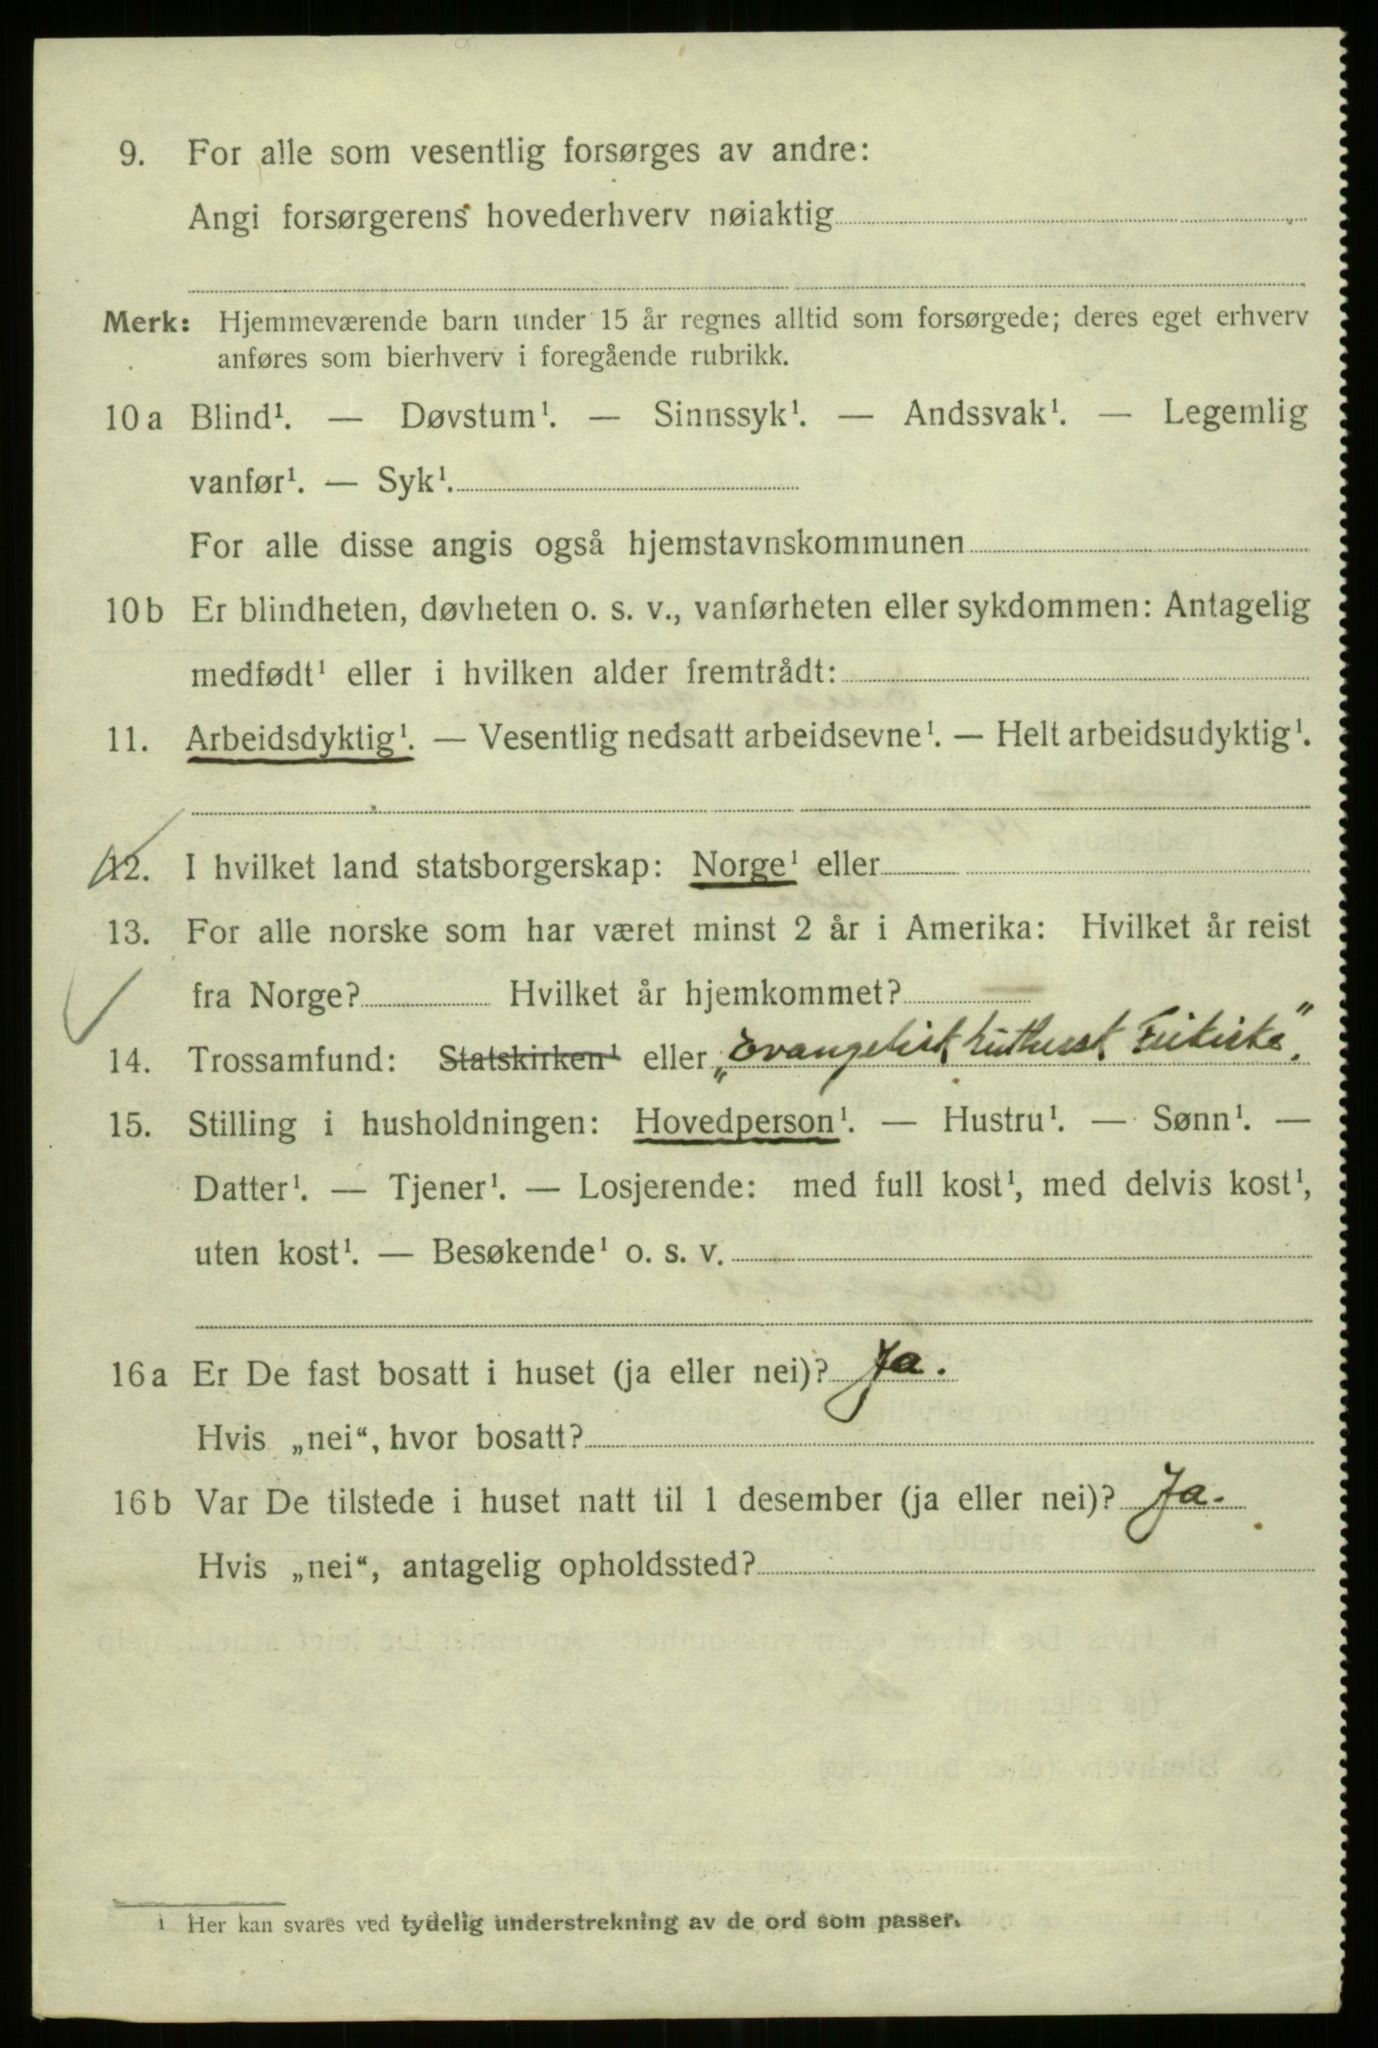 9. For alle som vesentlig forsørges av andre:
Angi forsørgerens hovederhverv nøiaktig
Merk: Hjemmeværende barn under 15 år regnes alltid som forsørgede; deres eget erhverv
anføres som bierhverv i foregående rubrikk.
10 a Blind¹. — Døvstum¹. — Sinnssyk¹. — Andssvak¹. — Legemlig
vanfør¹. — Syk¹.
For alle disse angis også hjemstavnskommunen
10 b Er blindheten, døvheten o. s. v., vanførheten eller sykdommen: Antagelig
medfødt¹ eller i hvilken alder fremtrådt:
11. Arbeidsdyktig¹. — Vesentlig nedsatt arbeidsevne¹. — Helt arbeidsudyktig¹.
12. I hvilket land statsborgerskap: Norge¹ eller
13. For alle norske som har været minst 2 år i Amerika: Hvilket år reist
fra Norge? Hvilket år hjemkommet? —
14. Trossamfund: Statskirken¹ eller „Evangelisk Luthersk Frikirke“.
15. Stilling i husholdningen: Hovedperson¹. — Hustru¹. — Sønn¹. —
Datter¹. — Tjener¹. — Losjerende: med full kost¹, med delvis kost¹,
uten kost¹. — Besøkende¹ o. s. v.
16 a Er De fast bosatt i huset (ja eller nei)? Ja.
Hvis „nei“, hvor bosatt?
16 b Var De tilstede i huset natt til 1 desember (ja eller nei)? Ja.
Hvis „nei“, antagelig opholdssted?
1 Her kan svares ved tydelig understrekning av de ord som passer.